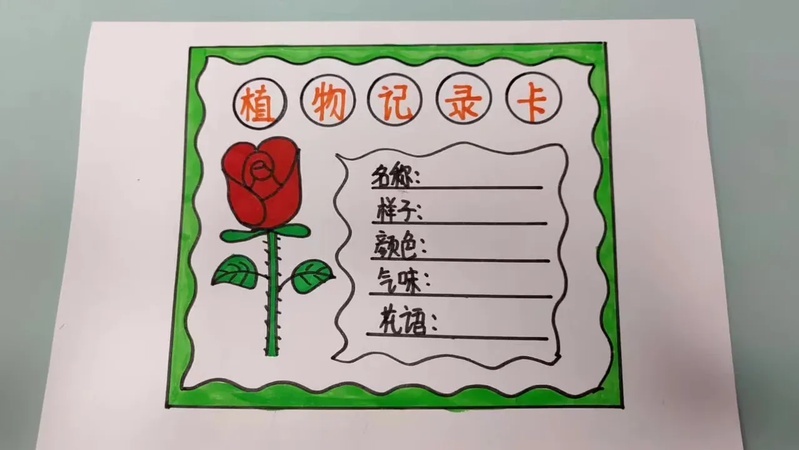 植物记录卡
名称:
样子:
颜色:
气味:
花语: